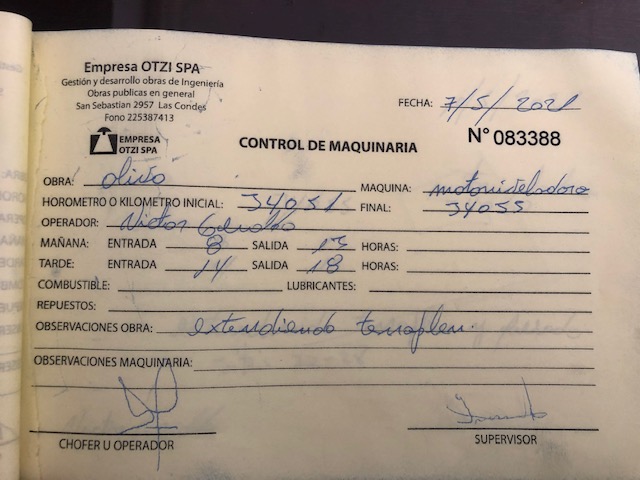 Empresa OTZI SPA
Gestión y desarrollo obras de Ingeniería
Obras publicas en general
San Sebastian 2957 Las Condes
Fono 225387413
FECHA: 7/5/2021
EMPRESA
OTZI SPA
CONTROL DE MAQUINARIA
N° 083388
OBRA: MAQUINA: motoniveladora
HOROMETRO O KILOMETRO INICIAL: 34051 FINAL: 34055
OPERADOR: Victor
MAÑANA: ENTRADA 8 SALIDA 13 HORAS:
TARDE: ENTRADA 14 SALIDA 18 HORAS:
COMBUSTIBLE: LUBRICANTES:
REPUESTOS:
OBSERVACIONES OBRA: extendiendo terraplen.
OBSERVACIONES MAQUINARIA:
CHOFER U OPERADOR SUPERVISOR